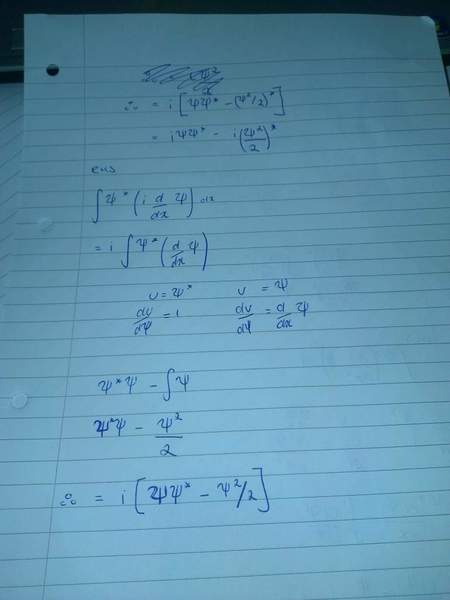 ∴ = i [ΨΨ* − (Ψ²/2)*]
= iΨΨ* − i(Ψ²/2)*
RHS
∫Ψ*(i d/dx Ψ) dx
= i ∫Ψ*(d/dx Ψ)
u = Ψ* v = Ψ
du/dΨ = 1 dv/dΨ = d/dx Ψ
Ψ*Ψ − ∫Ψ
Ψ*Ψ − Ψ²/2
∴ = i [ΨΨ* − Ψ²/2]